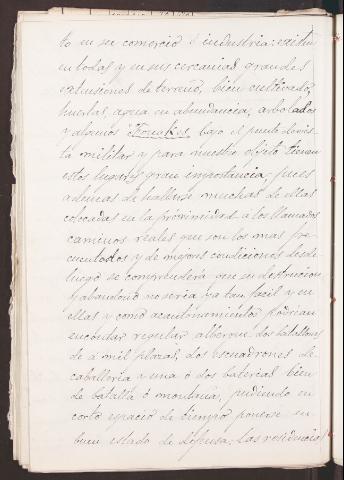 to en su comercio é industria: existen
en todas y en sus cercanias grandes
estensiones de terreno, bien cultivado,
huertas, agua en abundancia, arbolados
y algunos Kouakes, bajo el punto de vis-
ta militar y para nuestro objeto tienen
estos lugares gran importancia; pues
ademas de hallarse muchas de ellas
colocadas en la proximidad a los llamados
caminos reales que son los mas fre-
cuentados y de mejores condiciones desde
luego se comprenderá que su destruccion
y abandono no seria ya tan facil y en
ellas y como acantonamientos podrian
encontrar regular albergue dos batallones
de a mil plazas, dos escuadrones de
caballeria y una ó dos baterias bien
de batalla ó montaña, pudiendo en
corto espacio de tiempo ponerse en
buen estado de defensa; las residencias